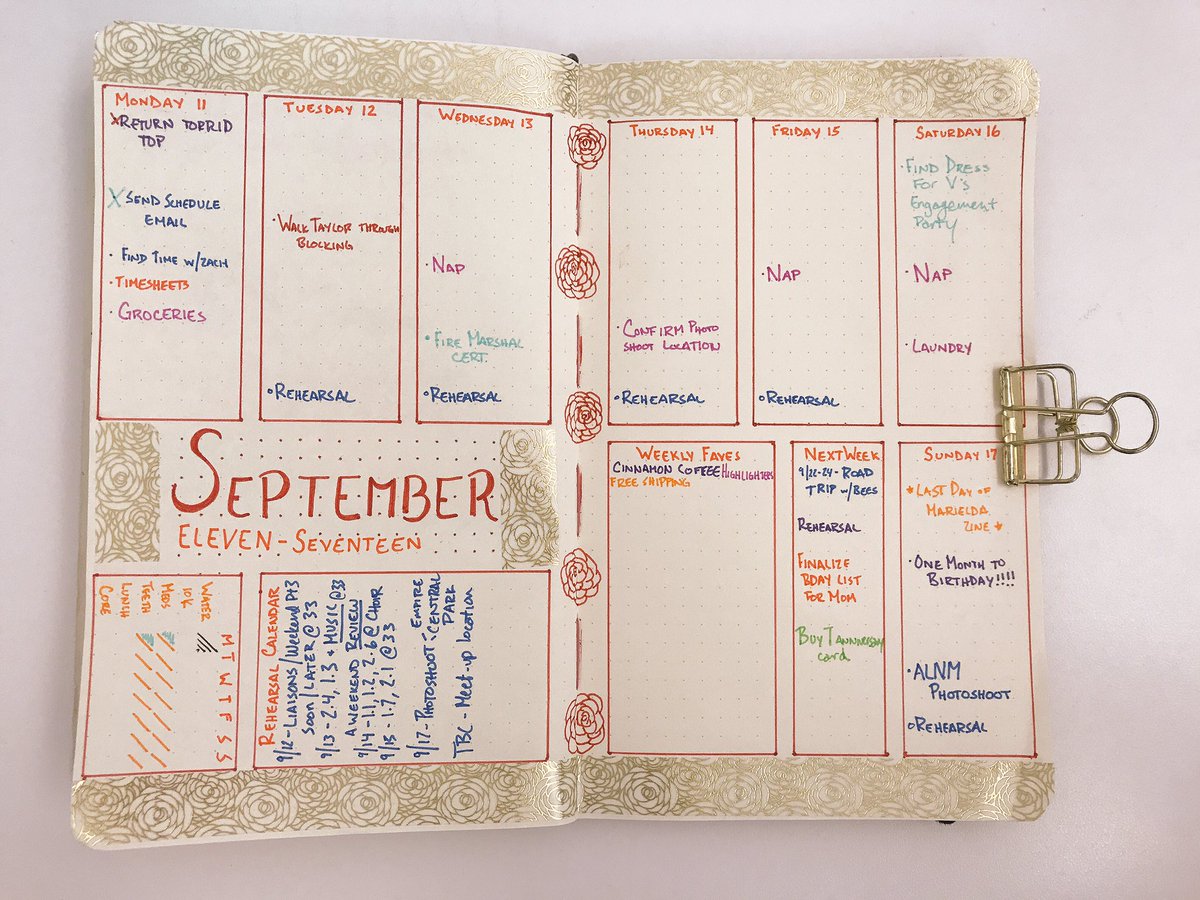 MONDAY 11
XRETURN TORRID
TOP
X SEND SCHEDULE
EMAIL
· FIND TIME W/ZACH
· TIMESHEETS
· GROCERIES
TUESDAY 12
· WALK TAYLOR THROUGH
BLOCKING
· REHEARSAL
WEDNESDAY 13
· NAP
· FIRE MARSHAL
CERT.
· REHEARSAL
THURSDAY 14
· CONFIRM PHOTO
SHOOT LOCATION
· REHEARSAL
FRIDAY 15
· NAP
· REHEARSAL
SATURDAY 16
· FIND DRESS
FOR V's
Engagement
Party
· NAP
· LAUNDRY
SEPTEMBER
ELEVEN - SEVENTEEN
WATER
10K
MEDS
TEETH
LUNCH
CORE
M T W T F S S
REHEARSAL CALENDAR
9/12 - LIAISONS/Weekend Pt3
SOON/LATER @ 33
9/13 - 2.4, 1.3 + MUSIC @33
A WEEKEND REVIEW
9/14 - 1.1, 1.2, 2.6 @ CHOIR
9/15 - 1.7, 2.1 @ 33
9/17 - PHOTOSHOOT - EMPIRE
CENTRAL
PARK
TBC - Meet-up location
WEEKLY FAVES
CINNAMON COFFEE HIGHLIGHTERS
FREE SHIPPING
NEXT WEEK
9/22-24 - ROAD
TRIP W/BEES
REHEARSAL
FINALIZE
BDAY LIST
FOR MOM
BUY
card
SUNDAY 17
* LAST DAY OF
MARIELDA
ZINE *
· ONE MONTH TO
BIRTHDAY!!!!
· ALNM
PHOTOSHOOT
· REHEARSAL